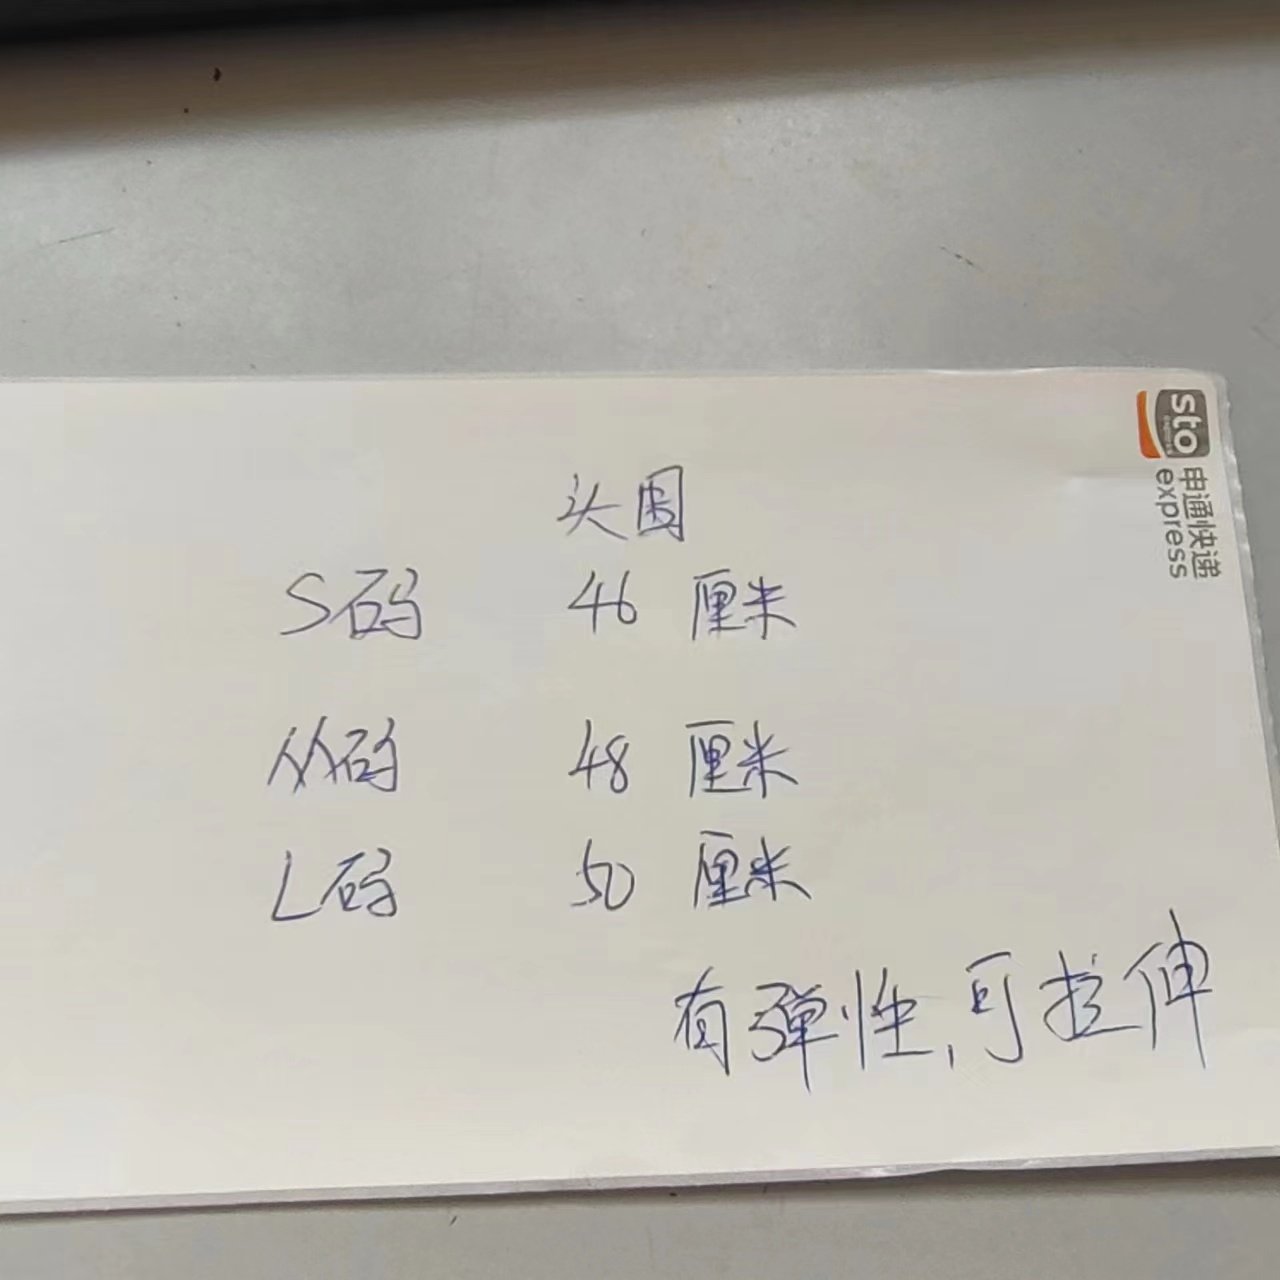 sto
express
申通快递
express
头围
S码 46 厘米
M码 48 厘米
L码 50 厘米
有弹性,可拉伸